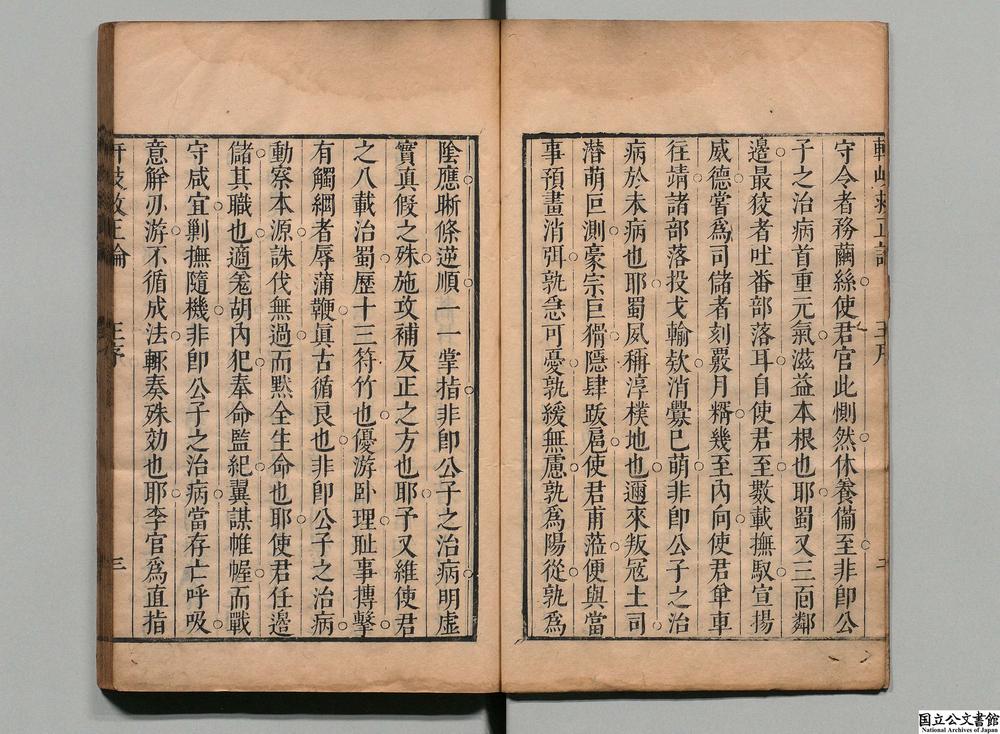 守令者務繭絲使君官此惻然休養備至非卽公
子之治病首重元氣滋益本根也耶蜀又三面鄰
邊最狡者吐番部落耳自使君至數載撫馭宣揚
威德嘗爲司儲者刻覈月糈幾至內向使君單車
往靖諸部落投戈輸欵消釁已萌非卽公子之治
病於未病也耶蜀夙稱淳樸地也邇來叛冦土司
潛萌叵測豪宗巨猾隱肆跋扈使君甫蒞便與當
事預畫消弭孰急可憂孰緩無慮孰爲陽從孰爲
陰應晰條逆順一一掌指非卽公子之治病明虛
實真假之殊施攻補反正之方也耶予又維使君
之八載治蜀歷十三符竹也優游卧理耻事摶擊
有觸綱者辱蒲鞭眞古循良也非卽公子之治病
動察本源誅伐無過而黙全生命也耶使君任邊
儲其職也適羗胡內犯奉命監紀翼謀帷幄而戰
守咸宜剿撫隨機非卽公子之治病當存亡呼吸
意解刃游不循成法輙奏殊効也耶李官爲直指
軒岐救正論 王序 三
国立公文書館
National Archives of Japan